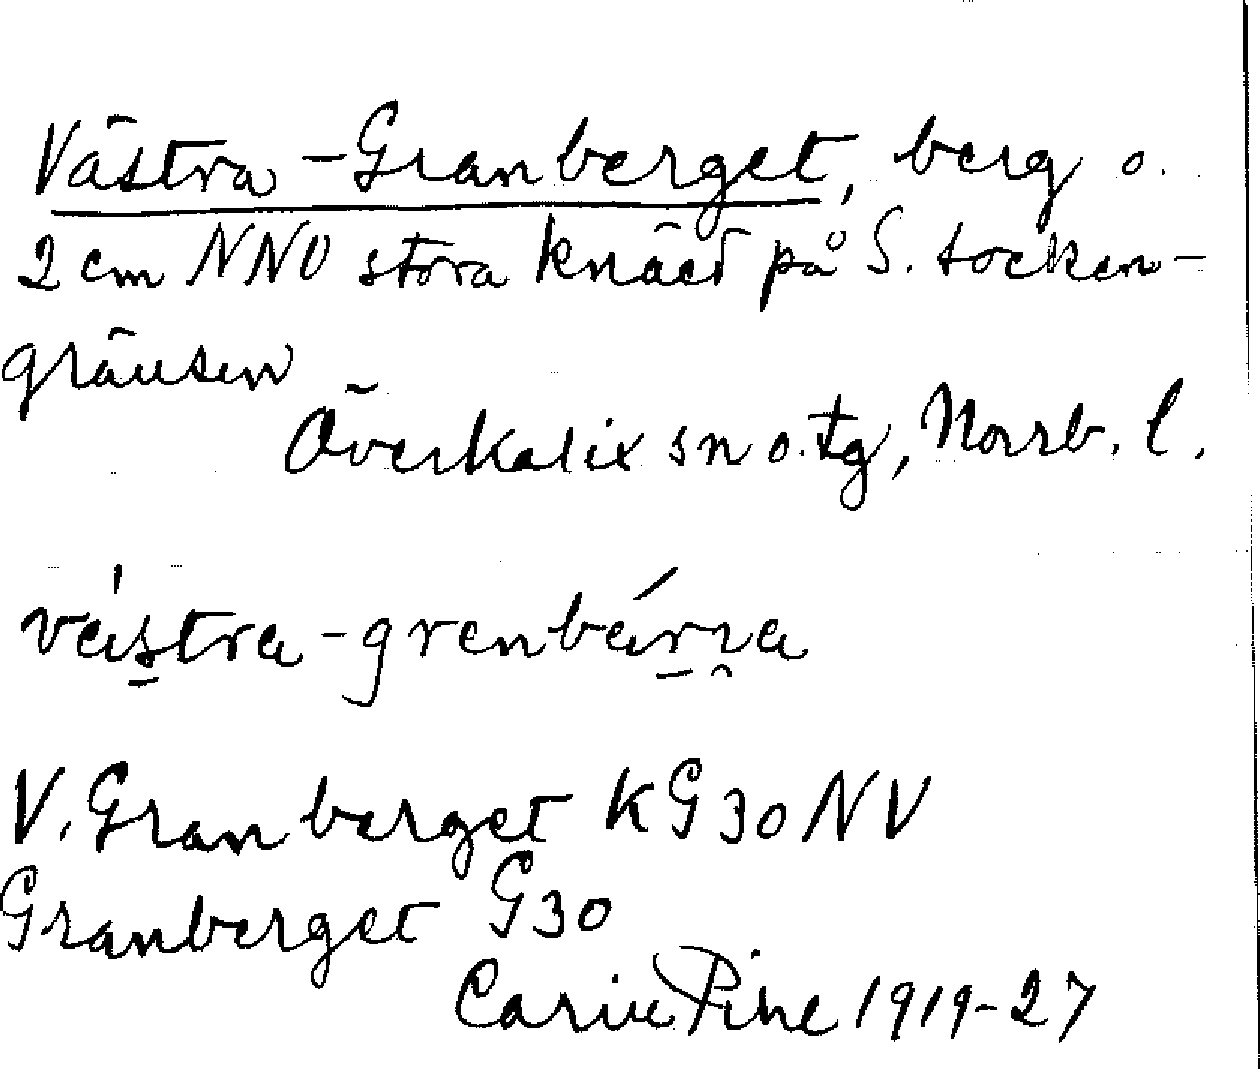 Västra-Granberget, berg o.
2 cm NNO stora knäet på S. socken-
gränsen
Överkalix sn o. tg, Norrb. l.
västra-grenbárra
V. Granberget KG30NV
Granberget G30
Carin Pihl 1919-27